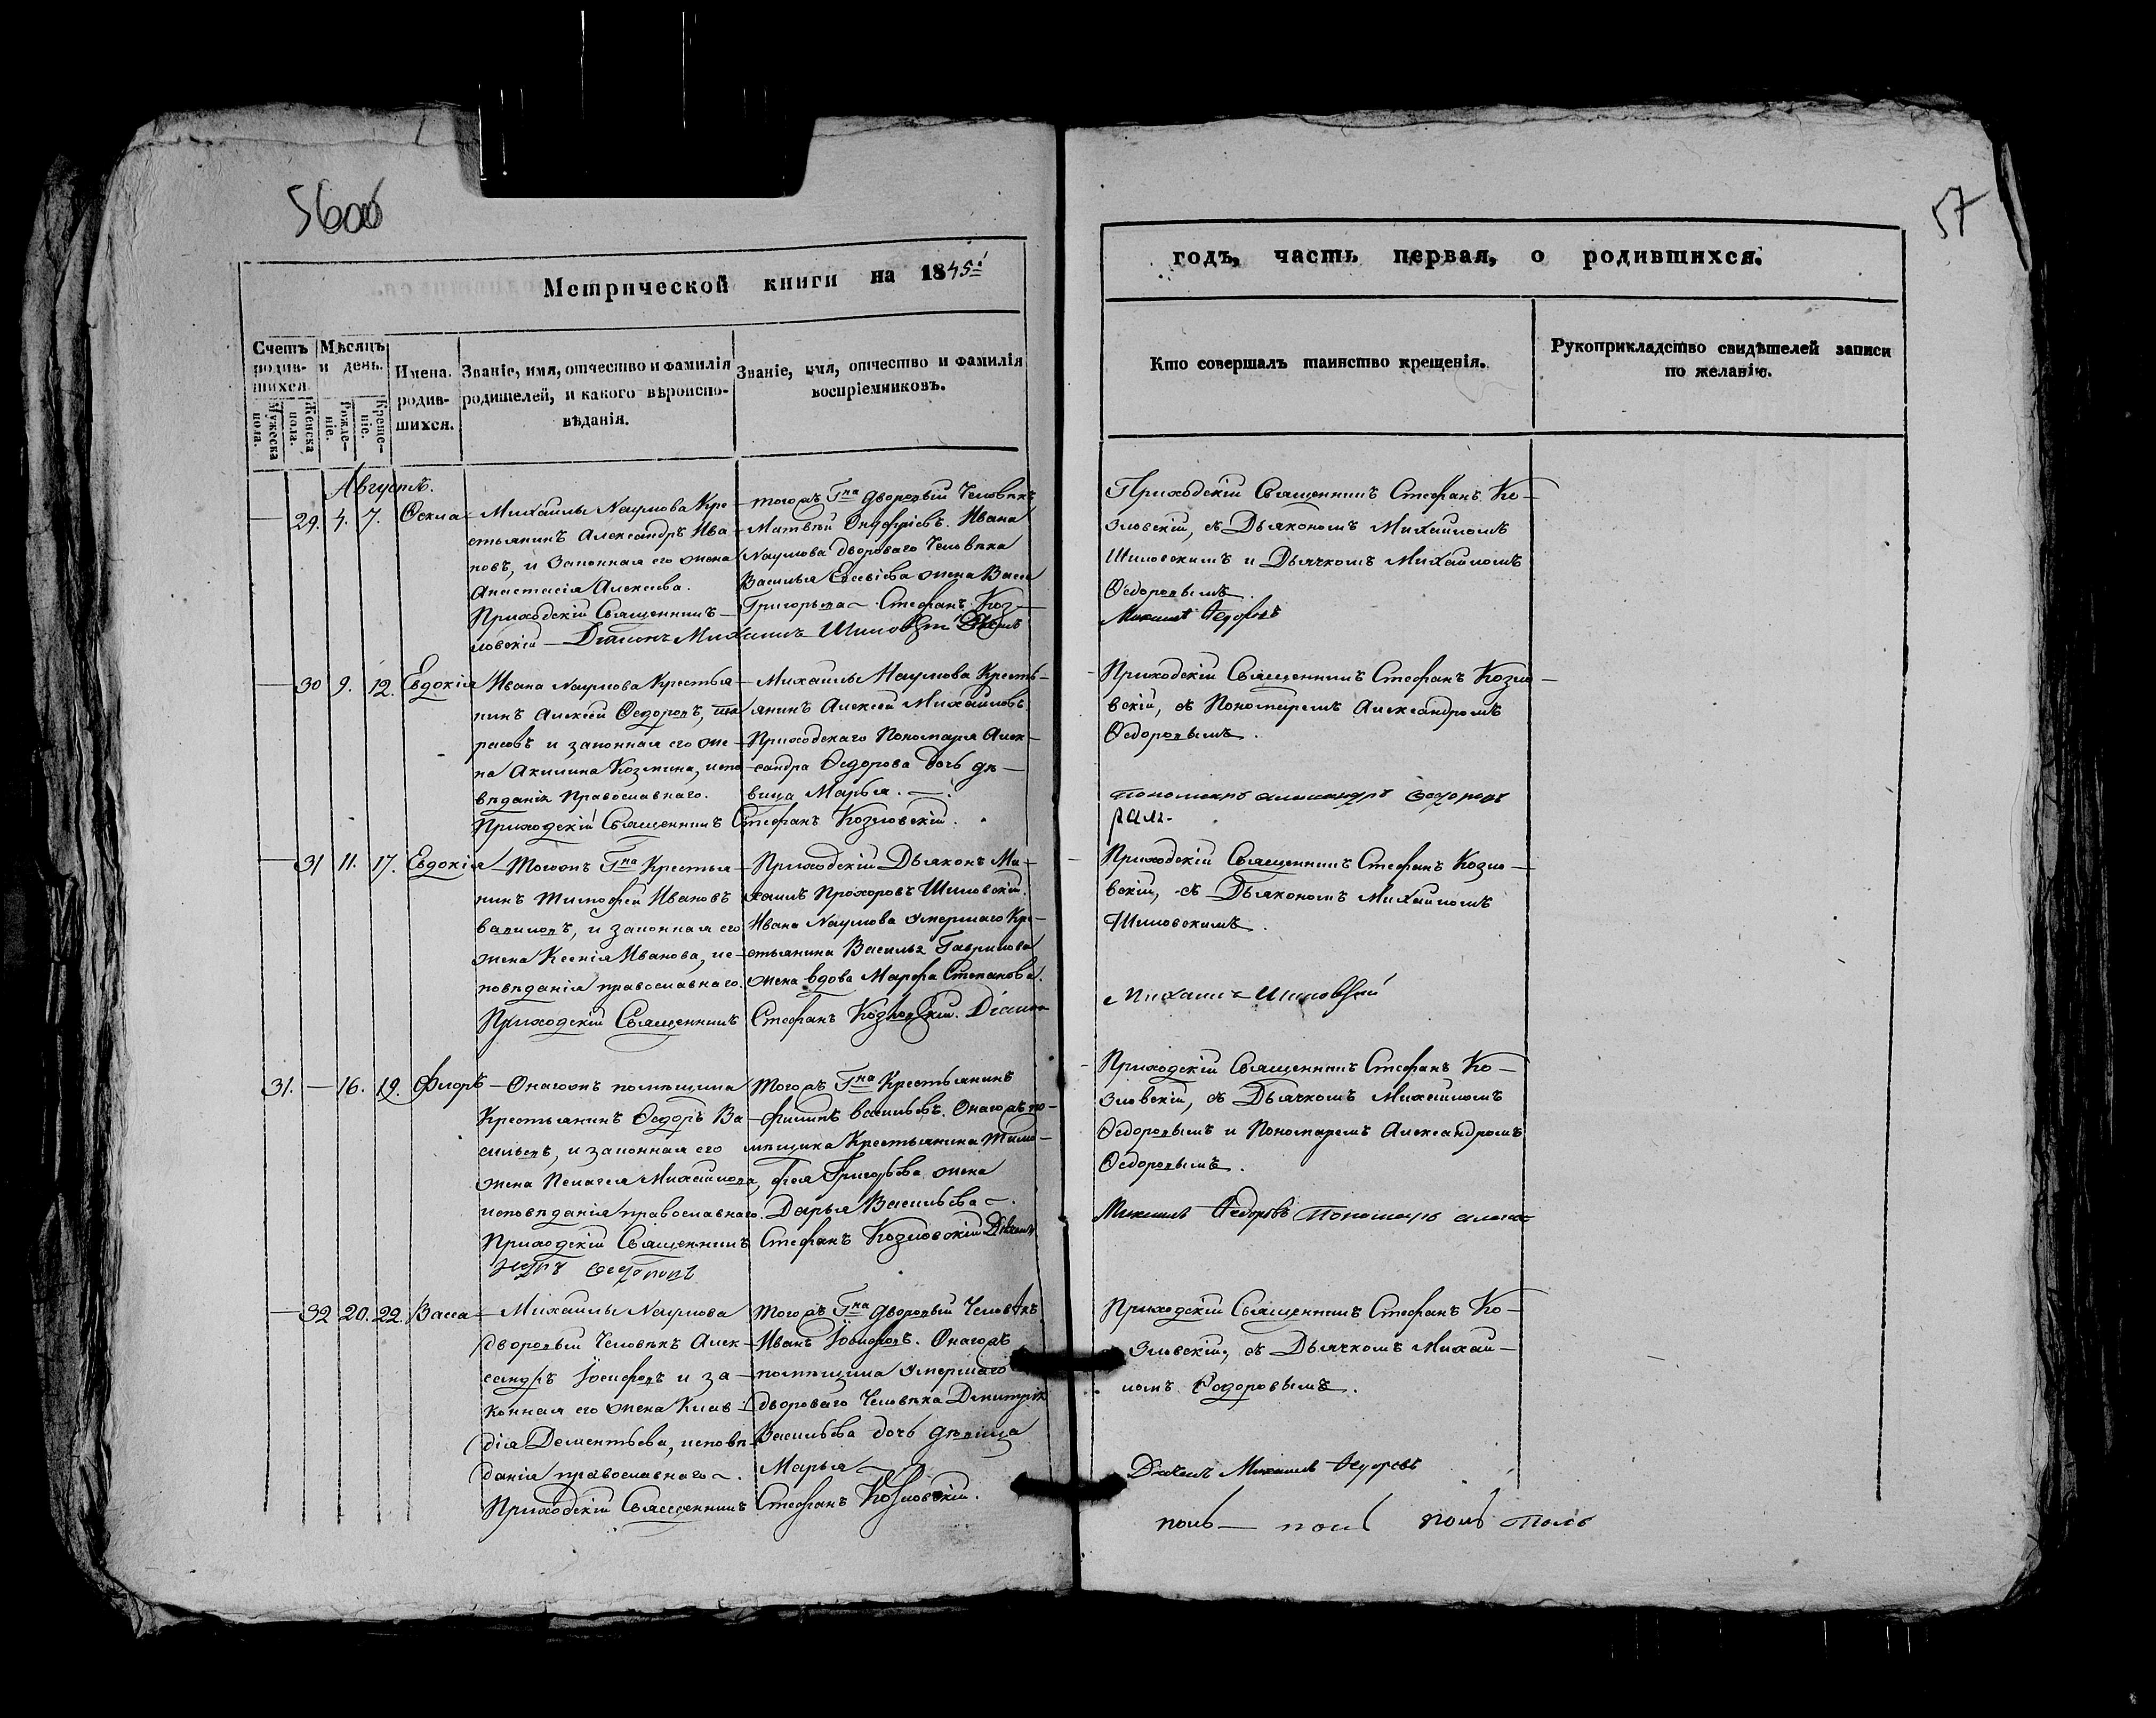 56об
57
Метрической книги на 1845й
годъ, часть первая, о родившихся.
Счетъ родив-шихся.
Мѣсяцъ и день.
Имена родив-шихся.
Званіе, имя, отчество и фамилія родителей, и какого вѣроиспо-вѣданія.
Званіе, имя, отчество и фамилія воспріемниковъ.
Кто совершалъ таинство крещенія.
Рукоприкладство свидѣтелей записи по желанію.
Мужеска пола.
Женска пола.
Рожде-ніе.
Креще-ніе.
Августъ.
— 29. 4. 7. Ѳекла
Михаилы Наумова Кре-
стьянинъ Александръ Ива-
новъ, и законная его жена
Анастасія Алексѣева.
Приходскій Священникъ
ловскій — Діаконъ Михаилъ Шиловскій
тогожъ Гна дворовый Человѣкъ
Матвѣй Онуфріевъ. Ивана
Наумова двороваго Человѣка
Василья Евсевіева жена Васса
Григорьева — Стефанъ Коз-
Приходскій Священникъ Стефанъ Ко-
зловскій, съ Дьякономъ Михаиломъ
Шиловскимъ и Дьячкомъ Михаиломъ
Ѳедоровымъ.
Михаилъ Ѳедоровъ
— 30 9. 12. Евдокія
Ивана Наумова Крестья-
нинъ Алексѣй Ѳедоровъ, та
расовъ и законная его же-
на Акилина Козмина, испо-
вѣданія Православнаго.
Приходскій Священникъ Стефанъ Козловскій.
Михаилы Наумова Кресть-
янинъ Алексѣй Михайловъ
Приходскаго Пономаря Алек-
сандра Ѳедорова дочь дѣ-
вица Марья. —
Приходскій Священникъ Стефанъ Козло-
вскій, съ Пономаремъ Александромъ
Ѳедоровымъ.
Пономарь александръ Ѳедоровъ
— 31 11. 17. Евдокія
Тогожъ Гна Крестья-
нинъ Тимофей Ивановъ
и законная его
жена Ксенія Иванова, ис-
повѣданія православнаго.
Приходскій Священникъ Стефанъ Козловскій. Діаконъ
Приходскій Дьяконъ Ми-
хаилъ Прохоровъ Шиловскій.
Ивана Наумова умершаго Кре-
стьянина Василья Гаврилова
жена вдова Марфа Степанова.
Приходскій Священникъ Стефанъ Козло-
вскій, съ Дьякономъ Михаиломъ
Шиловскимъ.
Михаилъ Шиловскій
31. — 16. 19. Флоръ
Онагожъ помѣщика
Крестьянинъ Ѳедоръ Ва-
сильевъ, и законная его
жена Пелагея Михайлова,
исповѣданія православнаго.
Приходскій Священникъ Стефанъ Козловскій Дьячекъ
Тогожъ Гна Крестьянинъ
Филипъ васильевъ. Онагожъ по-
мѣщика Крестьянина Тимо-
фея Григорьева жена
Дарья Васильева —.
Приходскій Священникъ Стефанъ Ко-
зловскій, съ Дьячкомъ Михаиломъ
Ѳедоровымъ и Пономаремъ Александромъ
Ѳедоровымъ.
Михаилъ Ѳедоровъ Пономарь алекса
ндръ Ѳедоровъ
— 32 20. 22. Васса
Михаилы Наумова
дворовый Человѣкъ Алек-
сандръ Іосифовъ и за-
конная его жена Клав-
дія Дементьева, исповѣ-
данія православнаго —.
Приходскій Священникъ Стефанъ Козловскій.
Тогожъ Гна дворовый Человѣкъ
Иванъ Іосифовъ. Онагожъ
помѣщика умершаго
двороваго Человѣка Дмитрія
Васильева дочь дѣвица
Марья —
Приходскій Священникъ Стефанъ Ко-
зловскій, съ Дьячкомъ Михаи-
ломъ Ѳедоровымъ.
Дьячекъ Михаилъ Ѳедоровъ